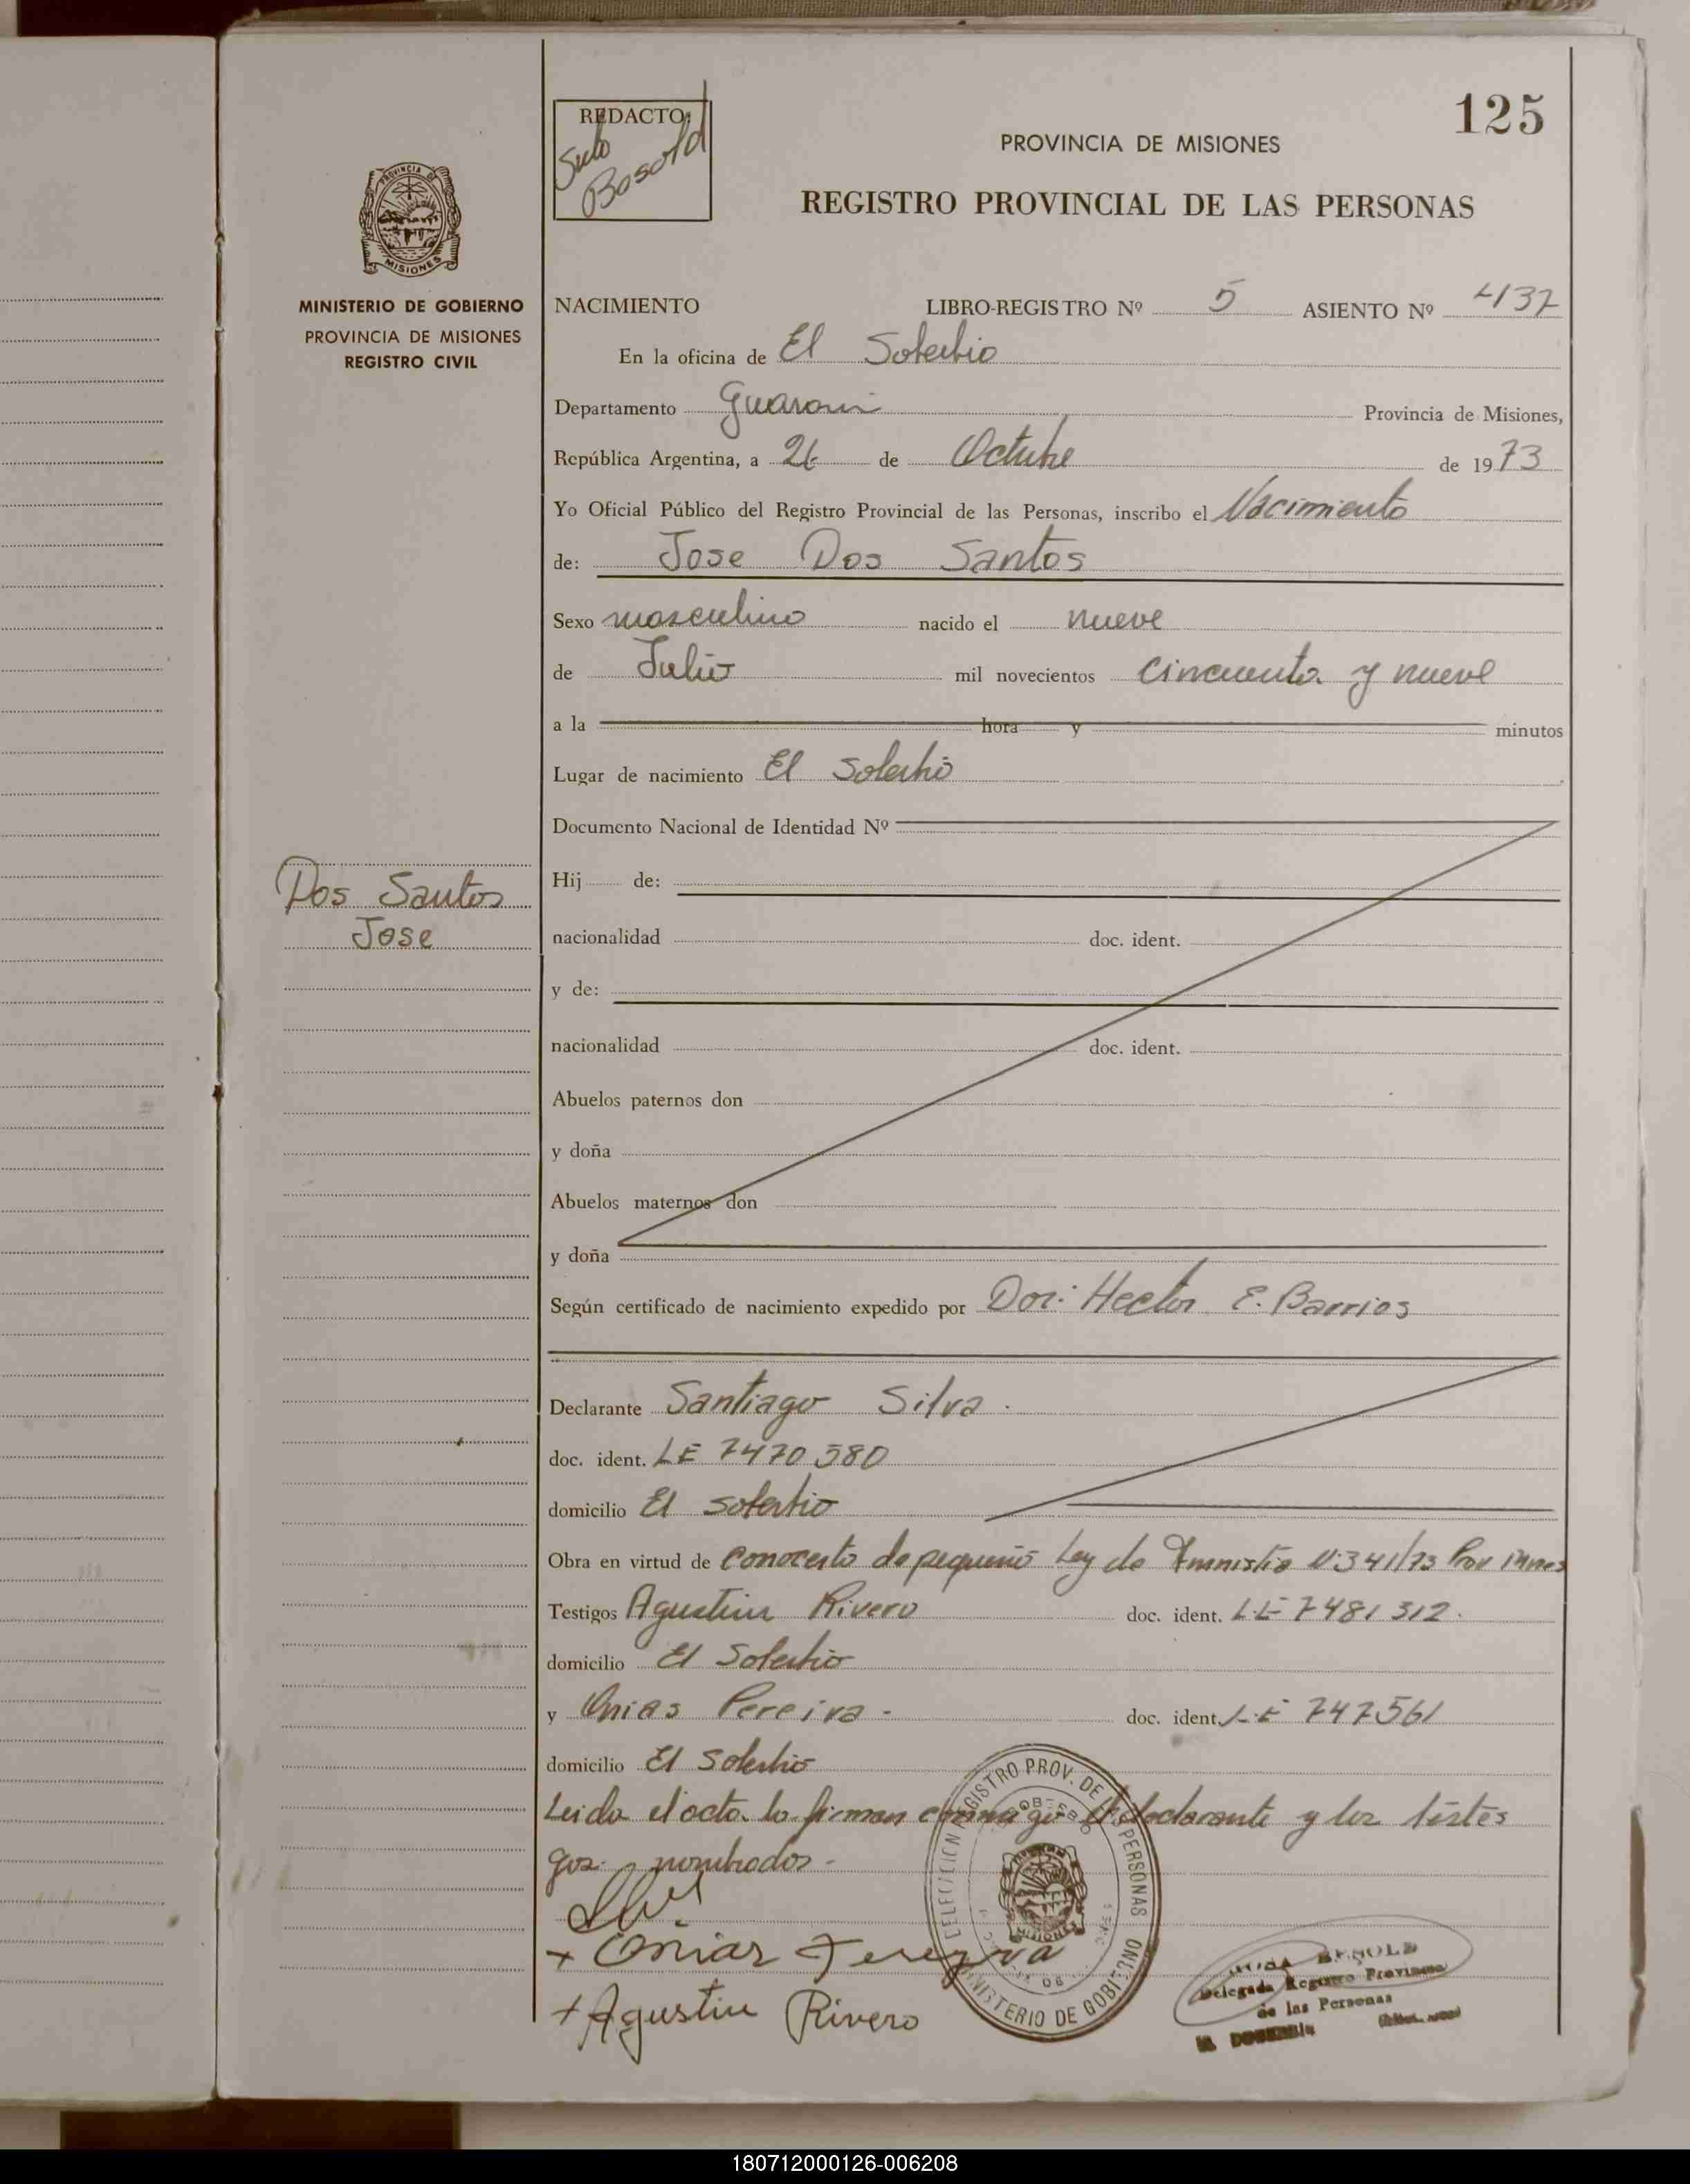 125
REDACTO:
Bosold
PROVINCIA DE MISIONES
REGISTRO PROVINCIAL DE LAS PERSONAS
PROVINCIA DE
MISIONES
MINISTERIO DE GOBIERNO
PROVINCIA DE MISIONES
REGISTRO CIVIL
NACIMIENTO LIBRO-REGISTRO Nº 5 ASIENTO Nº 4137
En la oficina de El Soberbio
Departamento Guarani Provincia de Misiones,
República Argentina, a 26 de Octubre de 1973
Yo Oficial Público del Registro Provincial de las Personas, inscribo el Nacimiento
de: Jose Dos Santos
Sexo masculino nacido el nueve
de Julio mil novecientos cincuenta y nueve
a la hora y minutos
Lugar de nacimiento El Soberbio
Documento Nacional de Identidad Nº
Dos Santos
Jose
Hij de:
nacionalidad doc. ident.
y de:
nacionalidad doc. ident.
Abuelos paternos don
y doña
Abuelos maternos don
y doña
Según certificado de nacimiento expedido por Dor: Hector E. Barrios
Declarante Santiago Silva.
doc. ident. LE 7470580
domicilio El Soberbio
Obra en virtud de de pequeño Ley de Amnistia N:341/73
Testigos Agustin Rivero doc. ident. L.E 7481312.
domicilio El Soberbio
y Onias Pereira - doc. ident. L.E 747561
domicilio El Soberbio
Leida el acta lo firman conmigo el declarante y los testes
gos. nombrados.
+ Onias Pereyra
+ Agustin Rivero
REGISTRO PROV. DE LAS PERSONAS
MINISTERIO DE GOBIERNO
MISIONES
BESOLD
Delegada Registro Provincial
de las Personas
180712000126-006208